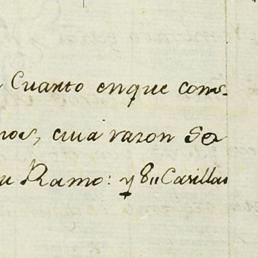 Cuanto enque com-
nos, cuia razon se
Ramo: y 8,, Casillas